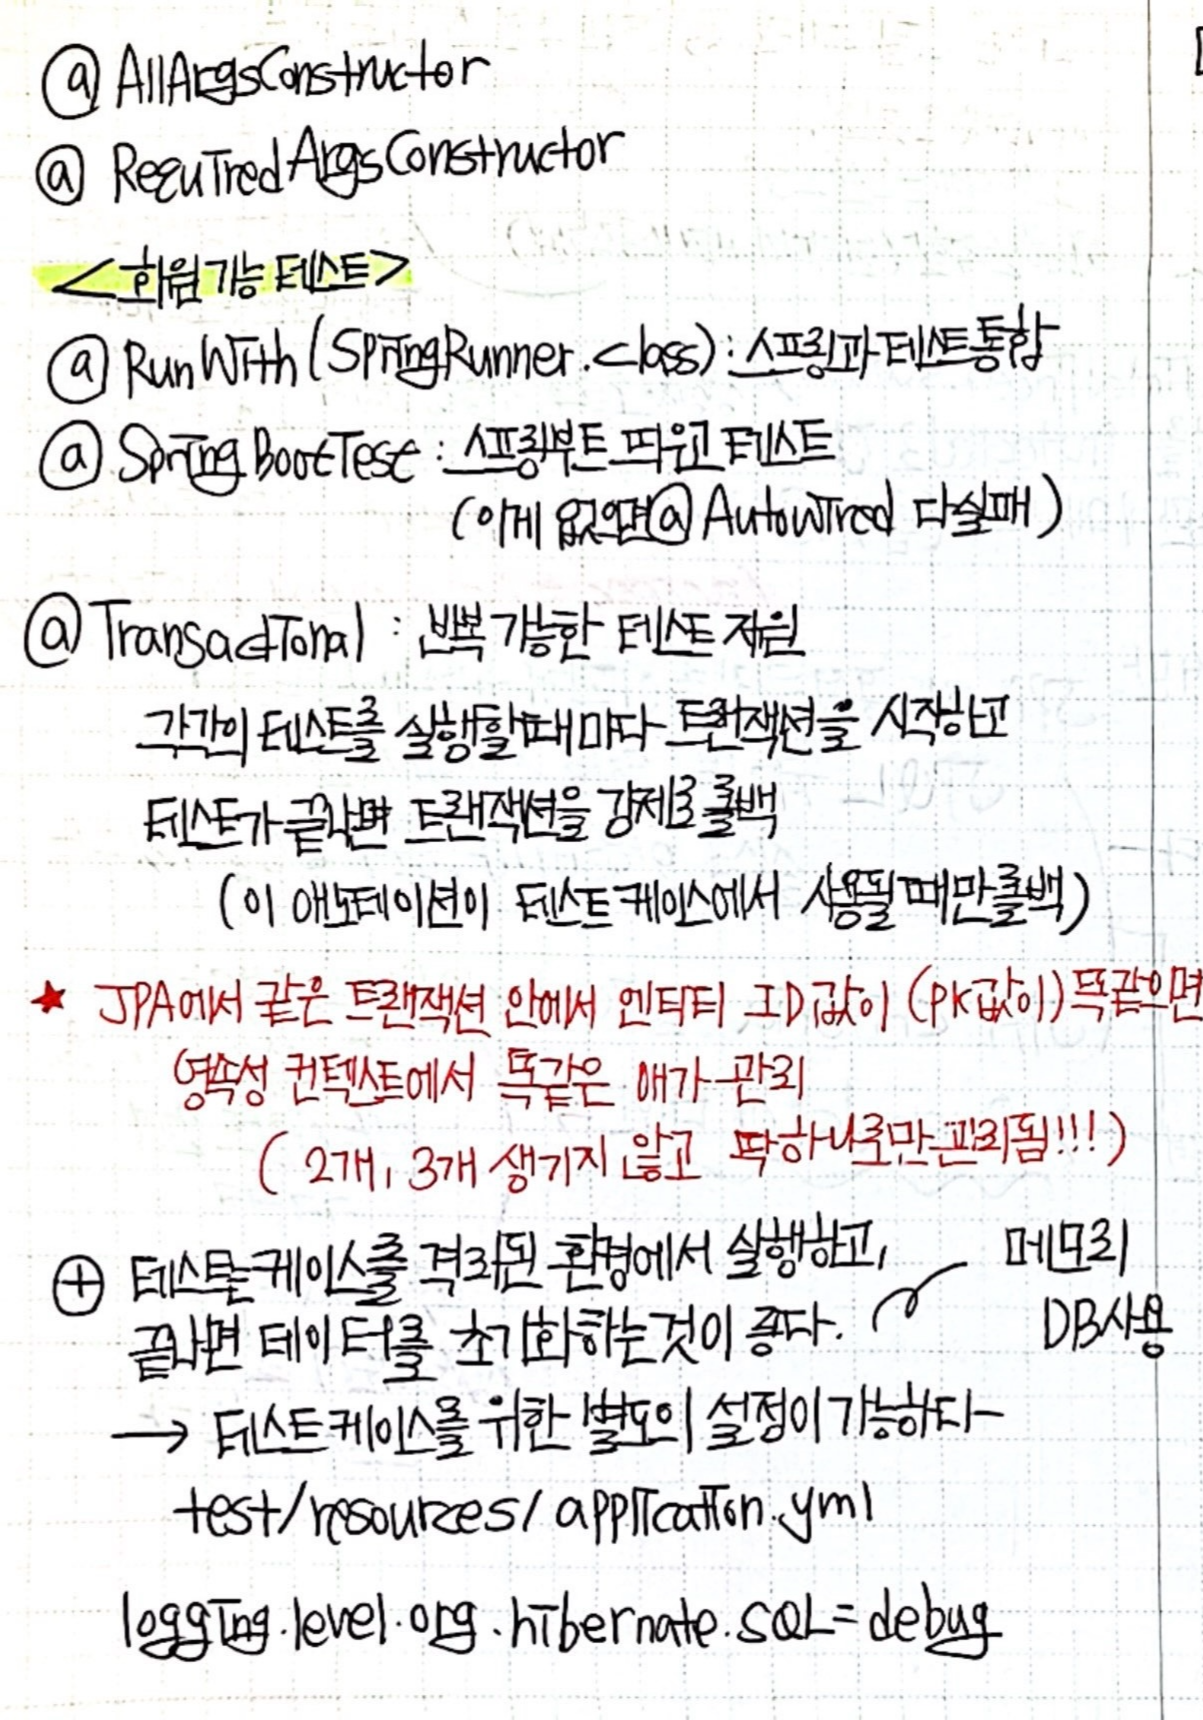 @ AllArgsConstructor
@ RequiredArgsConstructor
<회원 기능 테스트>
@ RunWith(SpringRunner.class) : 스프링과 테스트 통합
@ SpringBootTest : 스프링부트 띄우고 테스트
(이게 없으면 @ Autowired 다 실패)
@ Transactional : 반복 가능한 테스트 지원
각각의 테스트를 실행할 때마다 트랜잭션을 시작하고
테스트가 끝나면 트랜잭션을 강제로 롤백
(이 애노테이션이 테스트 케이스에서 사용될 때만 롤백)
★ JPA에서 같은 트랜잭션 안에서 엔티티 ID값이 (PK값이) 똑같으면
영속성 컨텍스트에서 똑같은 애가 관리
( 2개, 3개 생기지 않고 딱 하나로만 관리됨!!! )
⊕ 테스트는 케이스를 격리된 환경에서 실행하고,
끝나면 데이터를 초기화하는 것이 좋다.
메모리
DB사용
→ 테스트 케이스를 위한 별도의 설정이 가능하다
test/resources/application.yml
logging.level.org.hibernate.SQL=debug